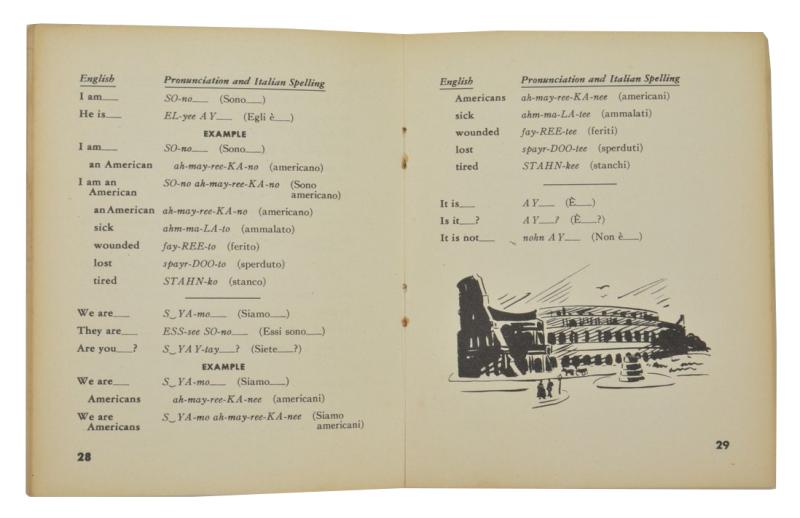 English Pronunciation and Italian Spelling
I am___ SO-no___ (Sono___)
He is___ EL-yee AY___ (Egli è___)
EXAMPLE
I am___ SO-no___ (Sono___)
an American ah-may-ree-KA-no (americano)
I am an SO-no ah-may-ree-KA-no (Sono
American americano)
an American ah-may-ree-KA-no (americano)
sick ahm-ma-LA-to (ammalato)
wounded fay-REE-to (ferito)
lost spayr-DOO-to (sperduto)
tired STAHN-ko (stanco)
We are___ S‿YA-mo___ (Siamo___)
They are___ ESS-see SO-no___ (Essi sono___)
Are you___? S‿YAY-tay___? (Siete___?)
EXAMPLE
We are___ S‿YA-mo___ (Siamo___)
Americans ah-may-ree-KA-nee (americani)
We are S‿YA-mo ah-may-ree-KA-nee (Siamo
Americans americani)
28
English Pronunciation and Italian Spelling
Americans ah-may-ree-KA-nee (americani)
sick ahm-ma-LA-tee (ammalati)
wounded fay-REE-tee (feriti)
lost spayr-DOO-tee (sperduti)
tired STAHN-kee (stanchi)
It is___ AY___ (È___)
Is it___? AY___? (È___?)
It is not___ nohn AY___ (Non è___)
29